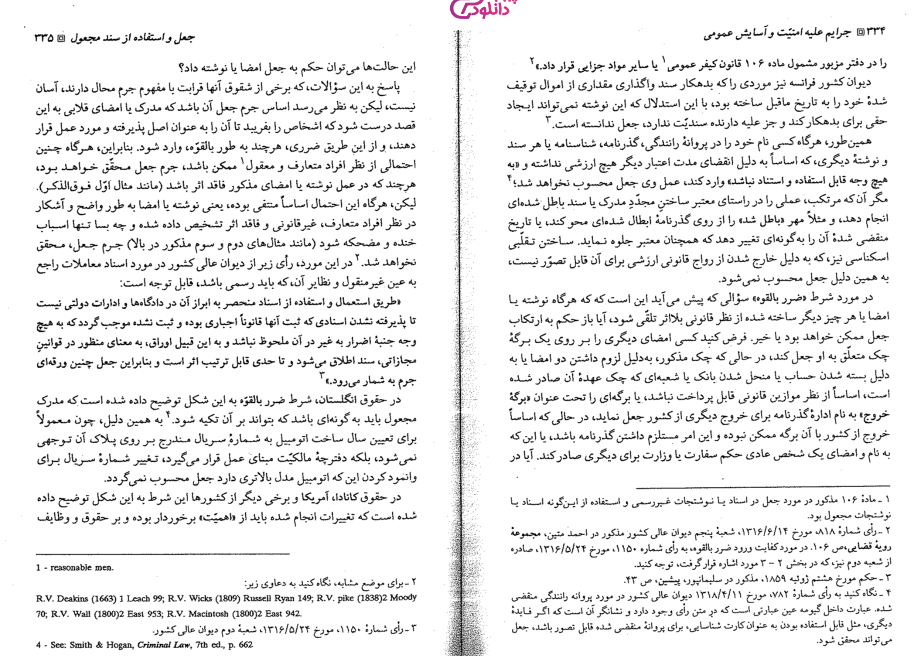 دانلود
۳۳۴ جرایم علیه امنیّت و آسایش عمومی
را در دفتر مزبور مشمول ماده ۱۰۶ قانون کیفر عمومی۱ یا سایر مواد جزایی قرار داد.»۲
دیوان کشور فرانسه نیز موردی را که بدهکار سند واگذاری مقداری از اموال توقیف
شدهٔ خود را به تاریخ ماقبل ساخته بود، با این استدلال که این نوشته نمی‌تواند ایجاد
حقی برای بدهکار کند و جز علیه دارنده سندیّت ندارد، جعل ندانسته است.۳
همین‌طور، هرگاه کسی نام خود را در پروانهٔ رانندگی، گذرنامه، شناسنامه یا هر سند
و نوشتهٔ دیگری، که اساساً به دلیل انقضای مدت اعتبار دیگر هیچ ارزشی نداشته و «به
هیچ وجه قابل استفاده و استناد نباشد» وارد کند، عمل وی جعل محسوب نخواهد شد؛۴
مگر آن که مرتکب، عملی را در راستای معتبر ساختنِ مجدّدِ مدرک یا سند باطل شده‌ای
انجام دهد، و مثلاً مهر «باطل شد» را از روی گذرنامهٔ ابطال شده‌ای محو کند، یا تاریخ
منقضی شدهٔ آن را به‌گونه‌ای تغییر دهد که همچنان معتبر جلوه نماید. ساختن تقلّبی
اسکناسی نیز، که به دلیل خارج شدن از رواج قانونی ارزشی برای آن قابل تصوّر نیست،
به همین دلیل جعل محسوب نمی‌شود.
در مورد شرط «ضرر بالقوه» سؤالی که پیش می‌آید این است که که هرگاه نوشته یا
امضا یا هر چیز دیگر ساخته شده از نظر قانونی بلااثر تلقّی شود، آیا باز حکم به ارتکاب
جعل ممکن خواهد بود یا خیر. فرض کنید کسی امضای دیگری را بر روی یک برگهٔ
چک متعلّق به او جعل کند، در حالی که چک مذکور، به‌دلیل لزوم داشتن دو امضا یا به
دلیل بسته شدن حساب یا منحل شدن بانک یا شعبه‌ای که چک عهدهٔ آن صادر شده
است، اساساً از نظر موازین قانونی قابل پرداخت نباشد، یا برگه‌ای را تحت عنوان «برگهٔ
خروج» به نام ادارهٔ گذرنامه برای خروج دیگری از کشور جعل نماید، در حالی که اساساً
خروج از کشور با آن برگه ممکن نبوده و این امر مستلزم داشتن گذرنامه باشد، یا این که
به نام و امضای یک شخص عادی حکم سفارت یا وزارت برای دیگری صادر کند. آیا در
۱ ـ مادهٔ ۱۰۶ مذکور در مورد جعل در اسناد یا نوشتجات غیررسمی و استفاده از این‌گونه اسناد یا
نوشتجات مجعول بود.
۲ ـ رأی شمارهٔ ۸۱۸، مورخ ۱۳۱۶/۶/۱۴، شعبهٔ پنجم دیوان عالی کشور مذکور در احمد متین، مجموعهٔ
رویهٔ قضایی، ص ۱۰۶. در مورد کفایت ورود ضرر بالقوه، به رأی شماره ۱۱۵۰، مورخ ۱۳۱۶/۵/۲۴، صادره
از شعبه دوم نیز، که در بخش ۲ – ۳ مورد اشاره قرار گرفت، توجه کنید.
۳ ـ حکم مورخ هشتم ژوئیه ۱۸۵۹، مذکور در سلیمانپور، پیشین، ص ۴۳.
۴ ـ نگاه کنید به رأی شمارهٔ ۷۸۲، مورخ ۱۳۱۸/۴/۱۱ دیوان عالی کشور در مورد پروانه رانندگی منقضی
شده. عبارت داخل گیومه عین عبارتی است که در متن رأی وجود دارد و نشانگر آن است که اگر فایدهٔ
دیگری، مثل قابل استفاده بودن به عنوان کارت شناسایی، برای پروانهٔ منقضی شده قابل تصور باشد، جعل
می‌تواند محقق شود.
جعل و استفاده از سند مجعول ۳۳۵
این حالت‌ها می‌توان حکم به جعل امضا یا نوشته داد؟
پاسخ به این سؤالات، که برخی از شقوق آنها قرابت با مفهوم جرم محال دارند، آسان
نیست، لیکن به نظر می‌رسد اساس جرم جعل آن باشد که مدرک یا امضای قلابی به این
قصد درست شود که اشخاص را بفریبد تا آن را به عنوان اصل پذیرفته و مورد عمل قرار
دهند، و از این طریق ضرری، هرچند به طور بالقوّه، وارد شود. بنابراین، هرگاه چنین
احتمالی از نظر افراد متعارف و معقول۱ ممکن باشد، جرم جعل محقّق خواهد بود،
هرچند که در عمل نوشته یا امضای مذکور فاقد اثر باشد (مانند مثال اوّل فوق‌الذکر).
لیکن، هرگاه این احتمال اساساً منتفی بوده، یعنی نوشته یا امضا به طور واضح و آشکار
در نظر افراد متعارف، غیرقانونی و فاقد اثر تشخیص داده شده و چه بسا تنها اسباب
خنده و مضحکه شود (مانند مثال‌های دوم و سوم مذکور در بالا) جرم جعل، محقق
نخواهد شد.۲ در این مورد، رأی زیر از دیوان عالی کشور در مورد اسناد معاملات راجع
به عین غیرمنقول و نظایر آن، که باید رسمی باشد، قابل توجه است:
«طریق استعمال و استفاده از اسناد منحصر به ابراز آن در دادگاه‌ها و ادارات دولتی نیست
تا پذیرفته نشدن اسنادی که ثبت آنها قانوناً اجباری بوده و ثبت نشده موجب گردد که به هیچ
وجه جنبهٔ اضرار به غیر در آن ملحوظ نباشد و به این قبیل اوراق، به معنای منظور در قوانین
مجازاتی، سند اطلاق می‌شود و تا حدی قابل ترتیب اثر است و بنابراین جعل چنین ورقه‌ای
جرم به شمار می‌رود.»۳
در حقوق انگلستان، شرط ضرر بالقوّه به این شکل توضیح داده شده است که مدرک
مجعول باید به گونه‌ای باشد که بتواند بر آن تکیه شود.۴ به همین دلیل، چون معمولاً
برای تعیین سال ساخت اتومبیل به شمارهٔ سریال مندرج بر روی پلاک آن توجهی
نمی‌شود، بلکه دفترچهٔ مالکیّت مبنای عمل قرار می‌گیرد، تغییر شمارهٔ سریال برای
وانمود کردن این که اتومبیل مدل بالاتری دارد جعل محسوب نمی‌گردد.
در حقوق کانادا، آمریکا و برخی دیگر از کشورها این شرط به این شکل توضیح داده
شده است که تغییرات انجام شده باید از «اهمیّت» برخوردار بوده و بر حقوق و وظایف
1 - reasonable men.
۲ ـ برای موضع مشابه، نگاه کنید به دعاوی زیر:
R.V. Deakins (1663) 1 Leach 99; R.V. Wicks (1809) Russell Ryan 149; R.V. pike (1838)2 Moody
70; R.V. Wall (1800)2 East 953; R.V. Macintosh (1800)2 East 942.
۳ ـ رأی شمارهٔ ۱۱۵۰، مورخ ۱۳۱۶/۵/۲۴، شعبهٔ دوم دیوان عالی کشور.
4 - See: Smith & Hogan, Criminal Law, 7th ed., p. 662